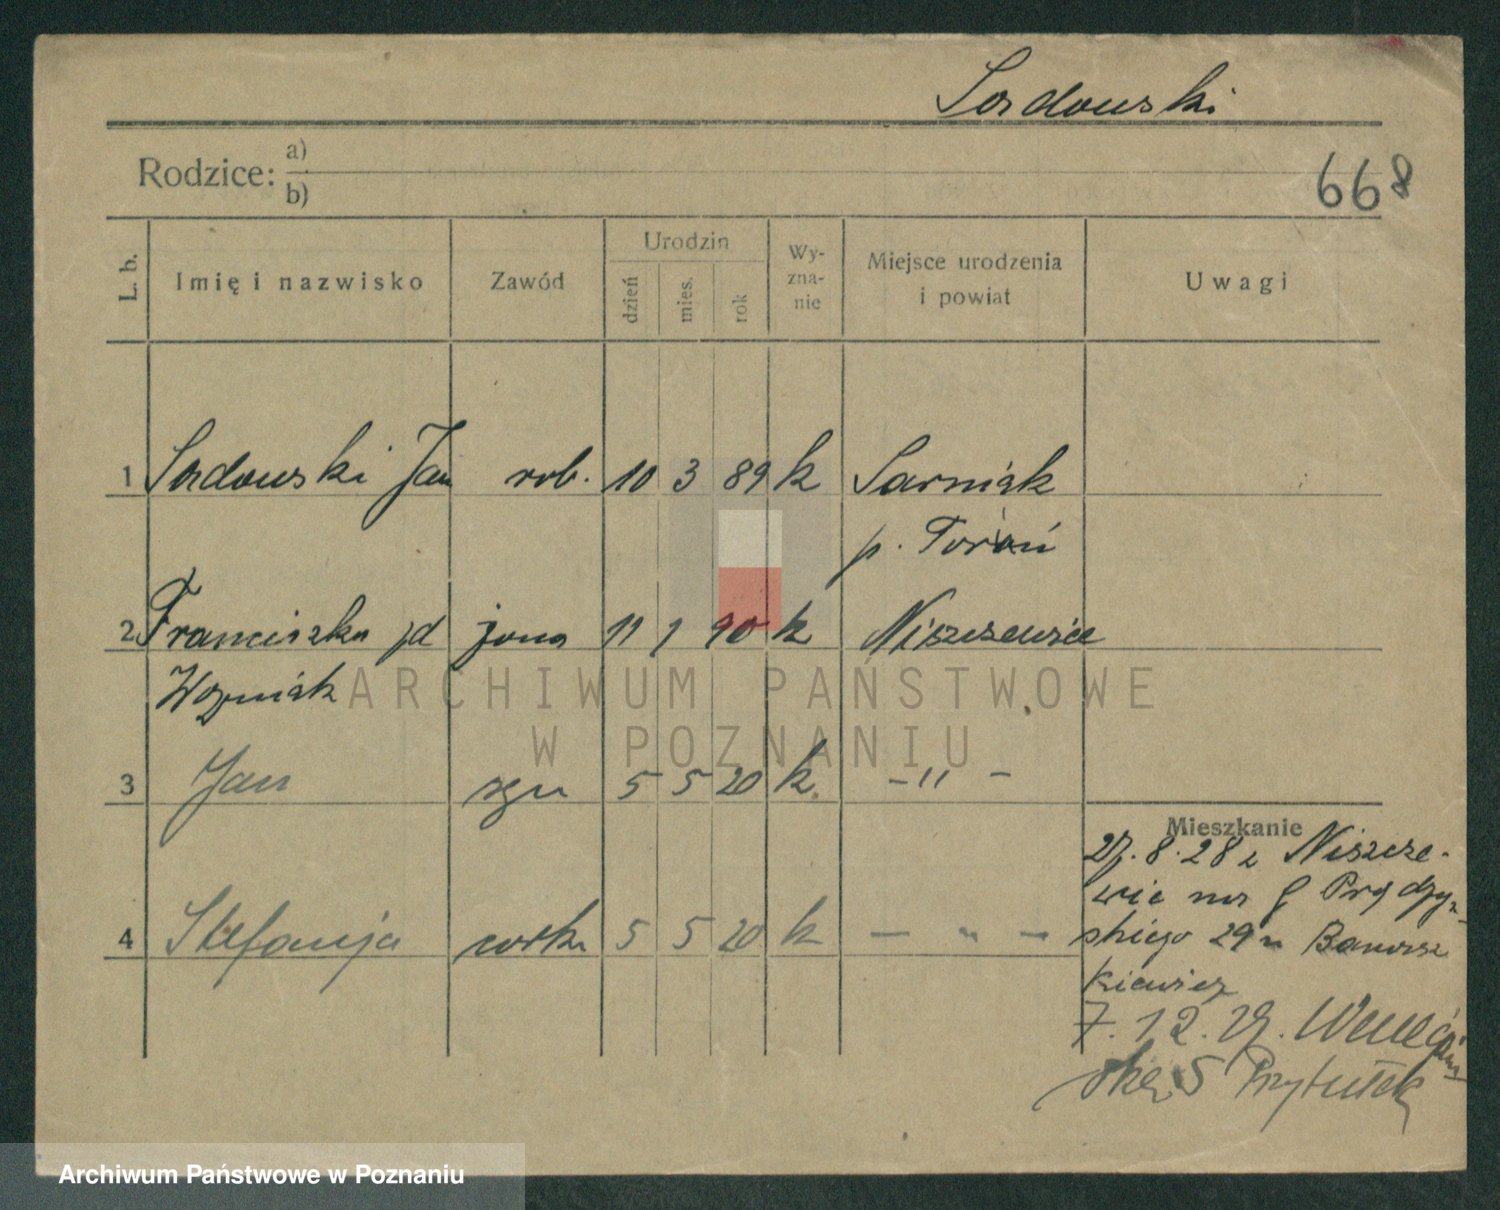 Sadowski
Rodzice: a)
b)
668
L. b.
Imię i nazwisko
Zawód
Urodzin
dzień
mies.
rok
Wy-
zna-
nie
Miejsce urodzenia
i powiat
Uwagi
1 Sadowski Jan rob. 10 3 89 k Sarniak
p. Toruń
2 Franciszka jd żona 11 1 90 k Niszczewice
Woźniak
ARCHIWUM PAŃSTWOWE
W POZNANIU
3 Jan syn 5 5 20 k. -"-
4 Stefanja córka 5 5 20 k - " -
Mieszkanie
27. 8. 28 z Niszcze-
wic na Prądzyń-
skiego 29 u
kiewicz
7. 12. 29.
5 Przytułek
Archiwum Państwowe w Poznaniu